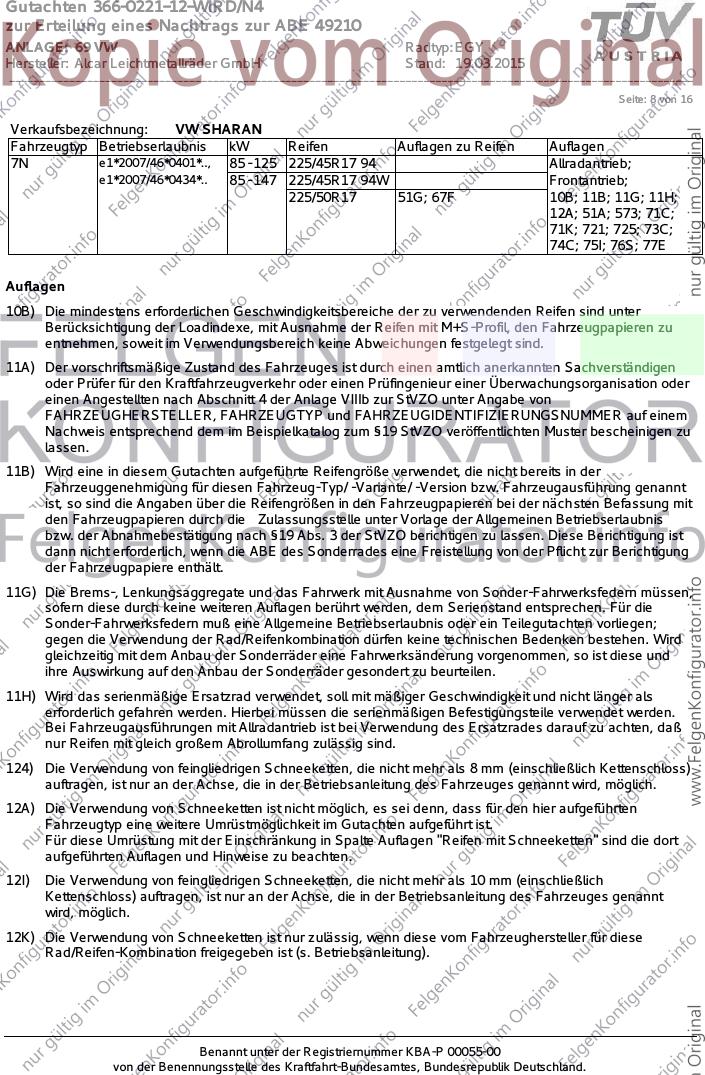 Gutachten 366-0221-12-WIRD/N4
zur Erteilung eines Nachtrags zur ABE 49210
ANLAGE: 69 VW Radtyp: EGY
Hersteller: Alcar Leichtmetallräder GmbH Stand: 19.03.2015
TÜV
AUSTRIA
Kopie vom Original
Seite: 8 von 16
Verkaufsbezeichnung: VW SHARAN
Fahrzeugtyp Betriebserlaubnis kW Reifen Auflagen zu Reifen Auflagen
7N e1*2007/46*0401*.., 85 -125 225/45R17 94 Allradantrieb;
e1*2007/46*0434*.. 85 -147 225/45R17 94W Frontantrieb;
225/50R17 51G; 67F 10B; 11B; 11G; 11H;
12A; 51A; 573; 71C;
71K; 721; 725; 73C;
74C; 75I; 76S; 77E
Auflagen
10B) Die mindestens erforderlichen Geschwindigkeitsbereiche der zu verwendenden Reifen sind unter
Berücksichtigung der Loadindexe, mit Ausnahme der Reifen mit M+S-Profil, den Fahrzeugpapieren zu
entnehmen, soweit im Verwendungsbereich keine Abweichungen festgelegt sind.
11A) Der vorschriftsmäßige Zustand des Fahrzeuges ist durch einen amtlich anerkannten Sachverständigen
oder Prüfer für den Kraftfahrzeugverkehr oder einen Prüfingenieur einer Überwachungsorganisation oder
einen Angestellten nach Abschnitt 4 der Anlage VIIIb zur StVZO unter Angabe von
FAHRZEUGHERSTELLER, FAHRZEUGTYP und FAHRZEUGIDENTIFIZIERUNGSNUMMER auf einem
Nachweis entsprechend dem im Beispielkatalog zum §19 StVZO veröffentlichten Muster bescheinigen zu
lassen.
11B) Wird eine in diesem Gutachten aufgeführte Reifengröße verwendet, die nicht bereits in der
Fahrzeuggenehmigung für diesen Fahrzeug-Typ/ -Variante/ -Version bzw. Fahrzeugausführung genannt
ist, so sind die Angaben über die Reifengrößen in den Fahrzeugpapieren bei der nächsten Befassung mit
den Fahrzeugpapieren durch die Zulassungsstelle unter Vorlage der Allgemeinen Betriebserlaubnis
bzw. der Abnahmebestätigung nach §19 Abs. 3 der StVZO berichtigen zu lassen. Diese Berichtigung ist
dann nicht erforderlich, wenn die ABE des Sonderrades eine Freistellung von der Pflicht zur Berichtigung
der Fahrzeugpapiere enthält.
11G) Die Brems-, Lenkungsaggregate und das Fahrwerk mit Ausnahme von Sonder-Fahrwerksfedern müssen,
sofern diese durch keine weiteren Auflagen berührt werden, dem Serienstand entsprechen. Für die
Sonder-Fahrwerksfedern muß eine Allgemeine Betriebserlaubnis oder ein Teilegutachten vorliegen;
gegen die Verwendung der Rad/Reifenkombination dürfen keine technischen Bedenken bestehen. Wird
gleichzeitig mit dem Anbau der Sonderräder eine Fahrwerksänderung vorgenommen, so ist diese und
ihre Auswirkung auf den Anbau der Sonderräder gesondert zu beurteilen.
11H) Wird das serienmäßige Ersatzrad verwendet, soll mit mäßiger Geschwindigkeit und nicht länger als
erforderlich gefahren werden. Hierbei müssen die serienmäßigen Befestigungsteile verwendet werden.
Bei Fahrzeugausführungen mit Allradantrieb ist bei Verwendung des Ersatzrades darauf zu achten, daß
nur Reifen mit gleich großem Abrollumfang zulässig sind.
124) Die Verwendung von feingliedrigen Schneeketten, die nicht mehr als 8 mm (einschließlich Kettenschloss)
auftragen, ist nur an der Achse, die in der Betriebsanleitung des Fahrzeuges genannt wird, möglich.
12A) Die Verwendung von Schneeketten ist nicht möglich, es sei denn, dass für den hier aufgeführten
Fahrzeugtyp eine weitere Umrüstmöglichkeit im Gutachten aufgeführt ist.
Für diese Umrüstung mit der Einschränkung in Spalte Auflagen "Reifen mit Schneeketten" sind die dort
aufgeführten Auflagen und Hinweise zu beachten.
12I) Die Verwendung von feingliedrigen Schneeketten, die nicht mehr als 10 mm (einschließlich
Kettenschloss) auftragen, ist nur an der Achse, die in der Betriebsanleitung des Fahrzeuges genannt
wird, möglich.
12K) Die Verwendung von Schneeketten ist nur zulässig, wenn diese vom Fahrzeughersteller für diese
Rad/Reifen-Kombination freigegeben ist (s. Betriebsanleitung).
Benannt unter der Registriernummer KBA-P 00055-00
von der Benennungsstelle des Kraftfahrt-Bundesamtes, Bundesrepublik Deutschland.
FELGEN
KONFIGURATOR
FelgenKonfigurator.info
nur gültig im Original
www.FelgenKonfigurator.info